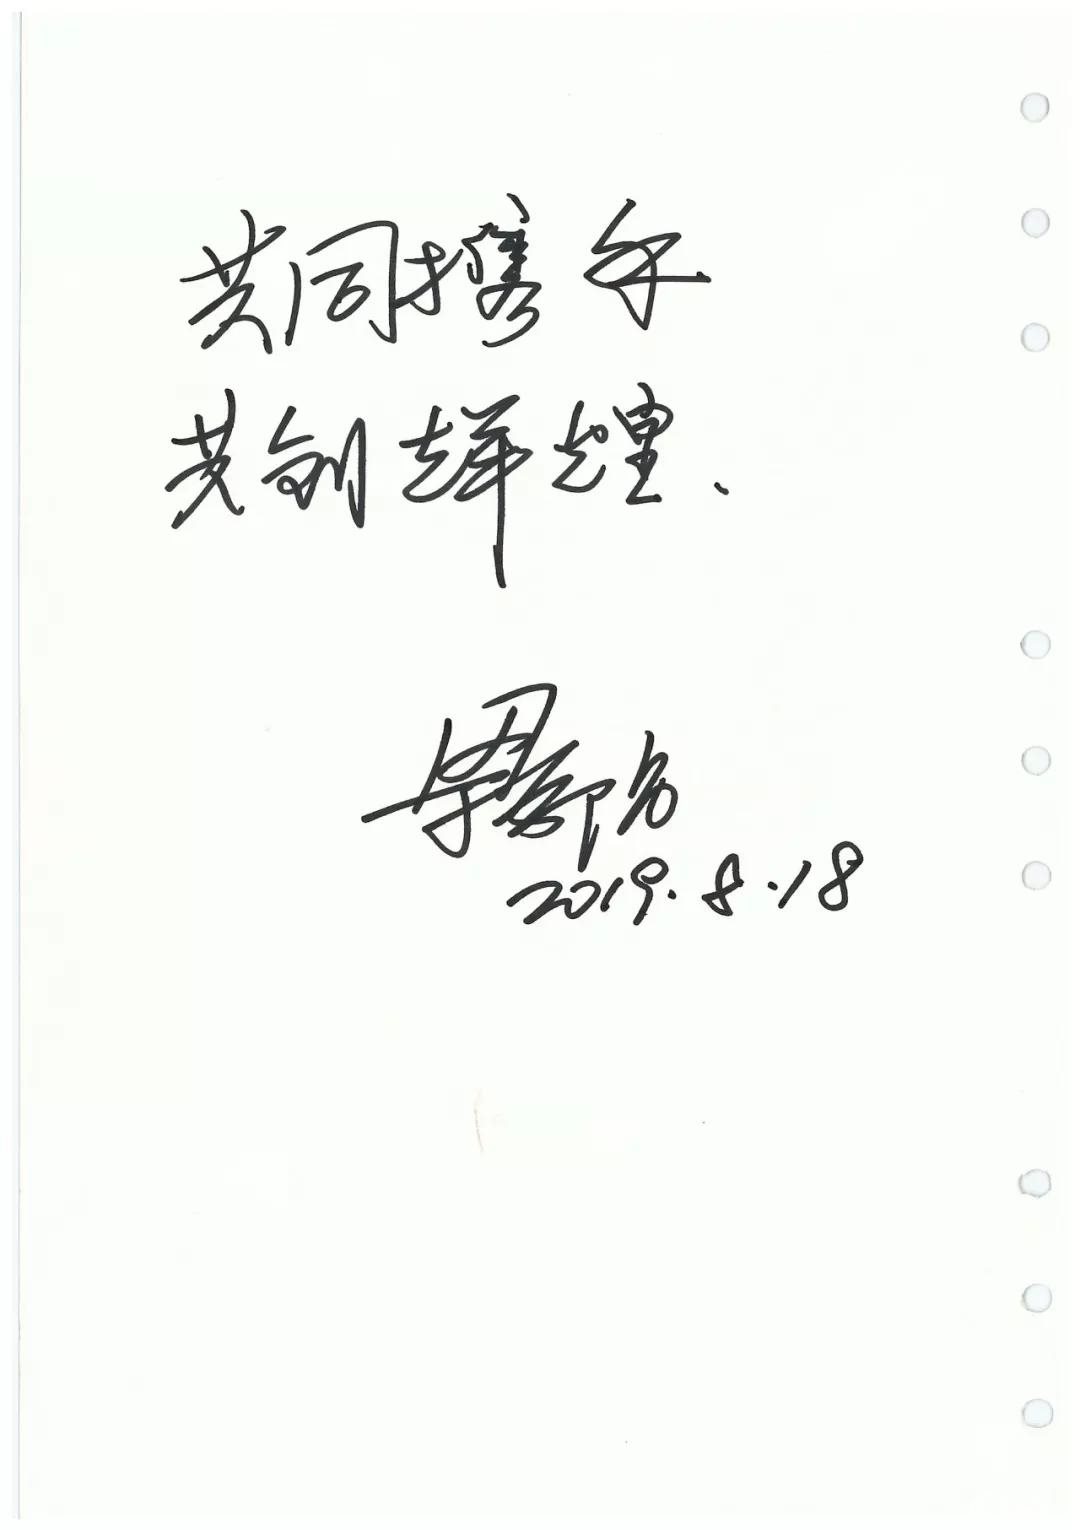 共同携手
共创辉煌.
2019.8.18